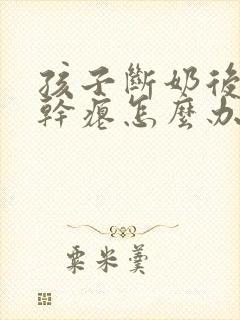 孩子斷奶後
幹癟怎麼办
粟米羹